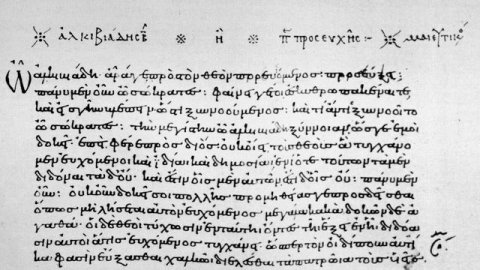 ἀλκιβιάδης β ἢ π προσευχῆς :- μαιευτικός
Ὦ ἀλκιβιάδη· ἆρά γε πρὸς τὸν θεὸν πορευόμενος προσεύξῃ:
πάνυ μὲν οὖν ὦ σώκρατες: φαίνῃ γέ τοι ἐσκυθρωπακέναι τε
καὶ εἰς γῆν βλέπειν ὥς τι ξυννοούμενος: καὶ τί ἄν τις ξυννοοῖτο
ὦ σώκρατες: τὴν μεγίστην ὦ ἀλκιβιάδη ξύννοιαν ὥς γ' ἐμοὶ
δοκεῖ· ἐπεὶ φέρε πρὸς διός· οὐκ οἴει τοὺς θεοὺς ἃ τυγχάνο
μεν εὐχόμενοι καὶ ἰδίαι καὶ δημοσίαι ἐνίοτε τούτων τὰ μὲν
διδόναι τὰ δ' οὔ· καὶ ἔστιν οἷς μὲν αὐτῶν ἔστι δ' οἷς οὔ: πάνυ μὲν
οὖν: οὐκοῦν δοκεῖ σοι πολλῆς προμηθείας γε προσδεῖσθαι
ὅπως μὴ λήσει αὑτὸν εὐχόμενος μεγάλα κακὰ δοκῶν δὲ
ἀγαθά· οἱ δὲ θεοὶ τύχωσιν ἐν ταύτῃ ὄντες τῇ ἕξει ἐν ᾗ διδόα
σιν αὐτοὶ ἅ τις εὐχόμενος τυγχάνει· ὥσπερ τὸν οἰδίπουν αὐτί
κα φασὶν εὔξασθαι χαλκῶι διελέσθαι τὰ πατρῶια τοὺς ὑεῖς